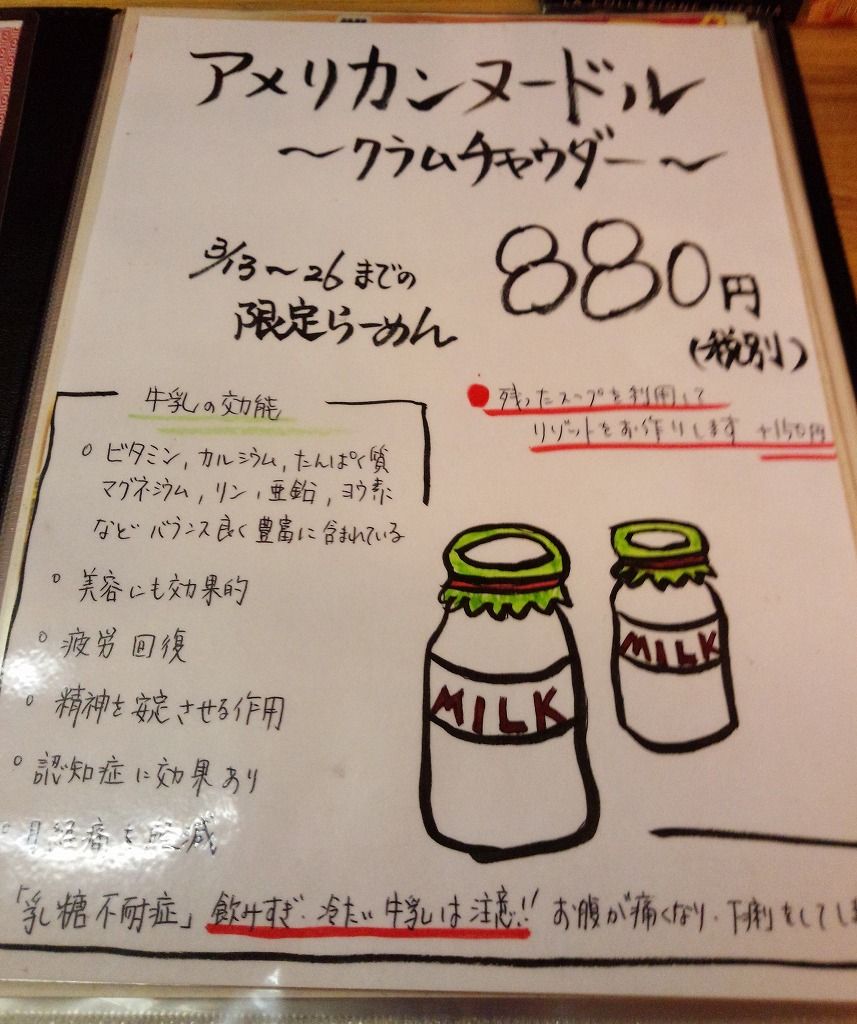 LA COLLEZIONE D'ITALIA
アメリカンヌードル
～クラムチャウダー～
3/13～26までの
限定らーめん
880円
(税別)
残ったスープを利用して
リゾットをお作りします +150円
牛乳の効能
ビタミン,カルシウム,たんぱく質
マグネシウム,リン,亜鉛,ヨウ素
など バランス良く豊富に含まれている
美容にも効果的
疲労回復
精神を安定させる作用
認知症に効果あり
月経痛も軽減
MILK
MILK
「乳糖不耐症」飲みすぎ・冷たい牛乳は注意!! お腹が痛くなり、下痢をしてしま